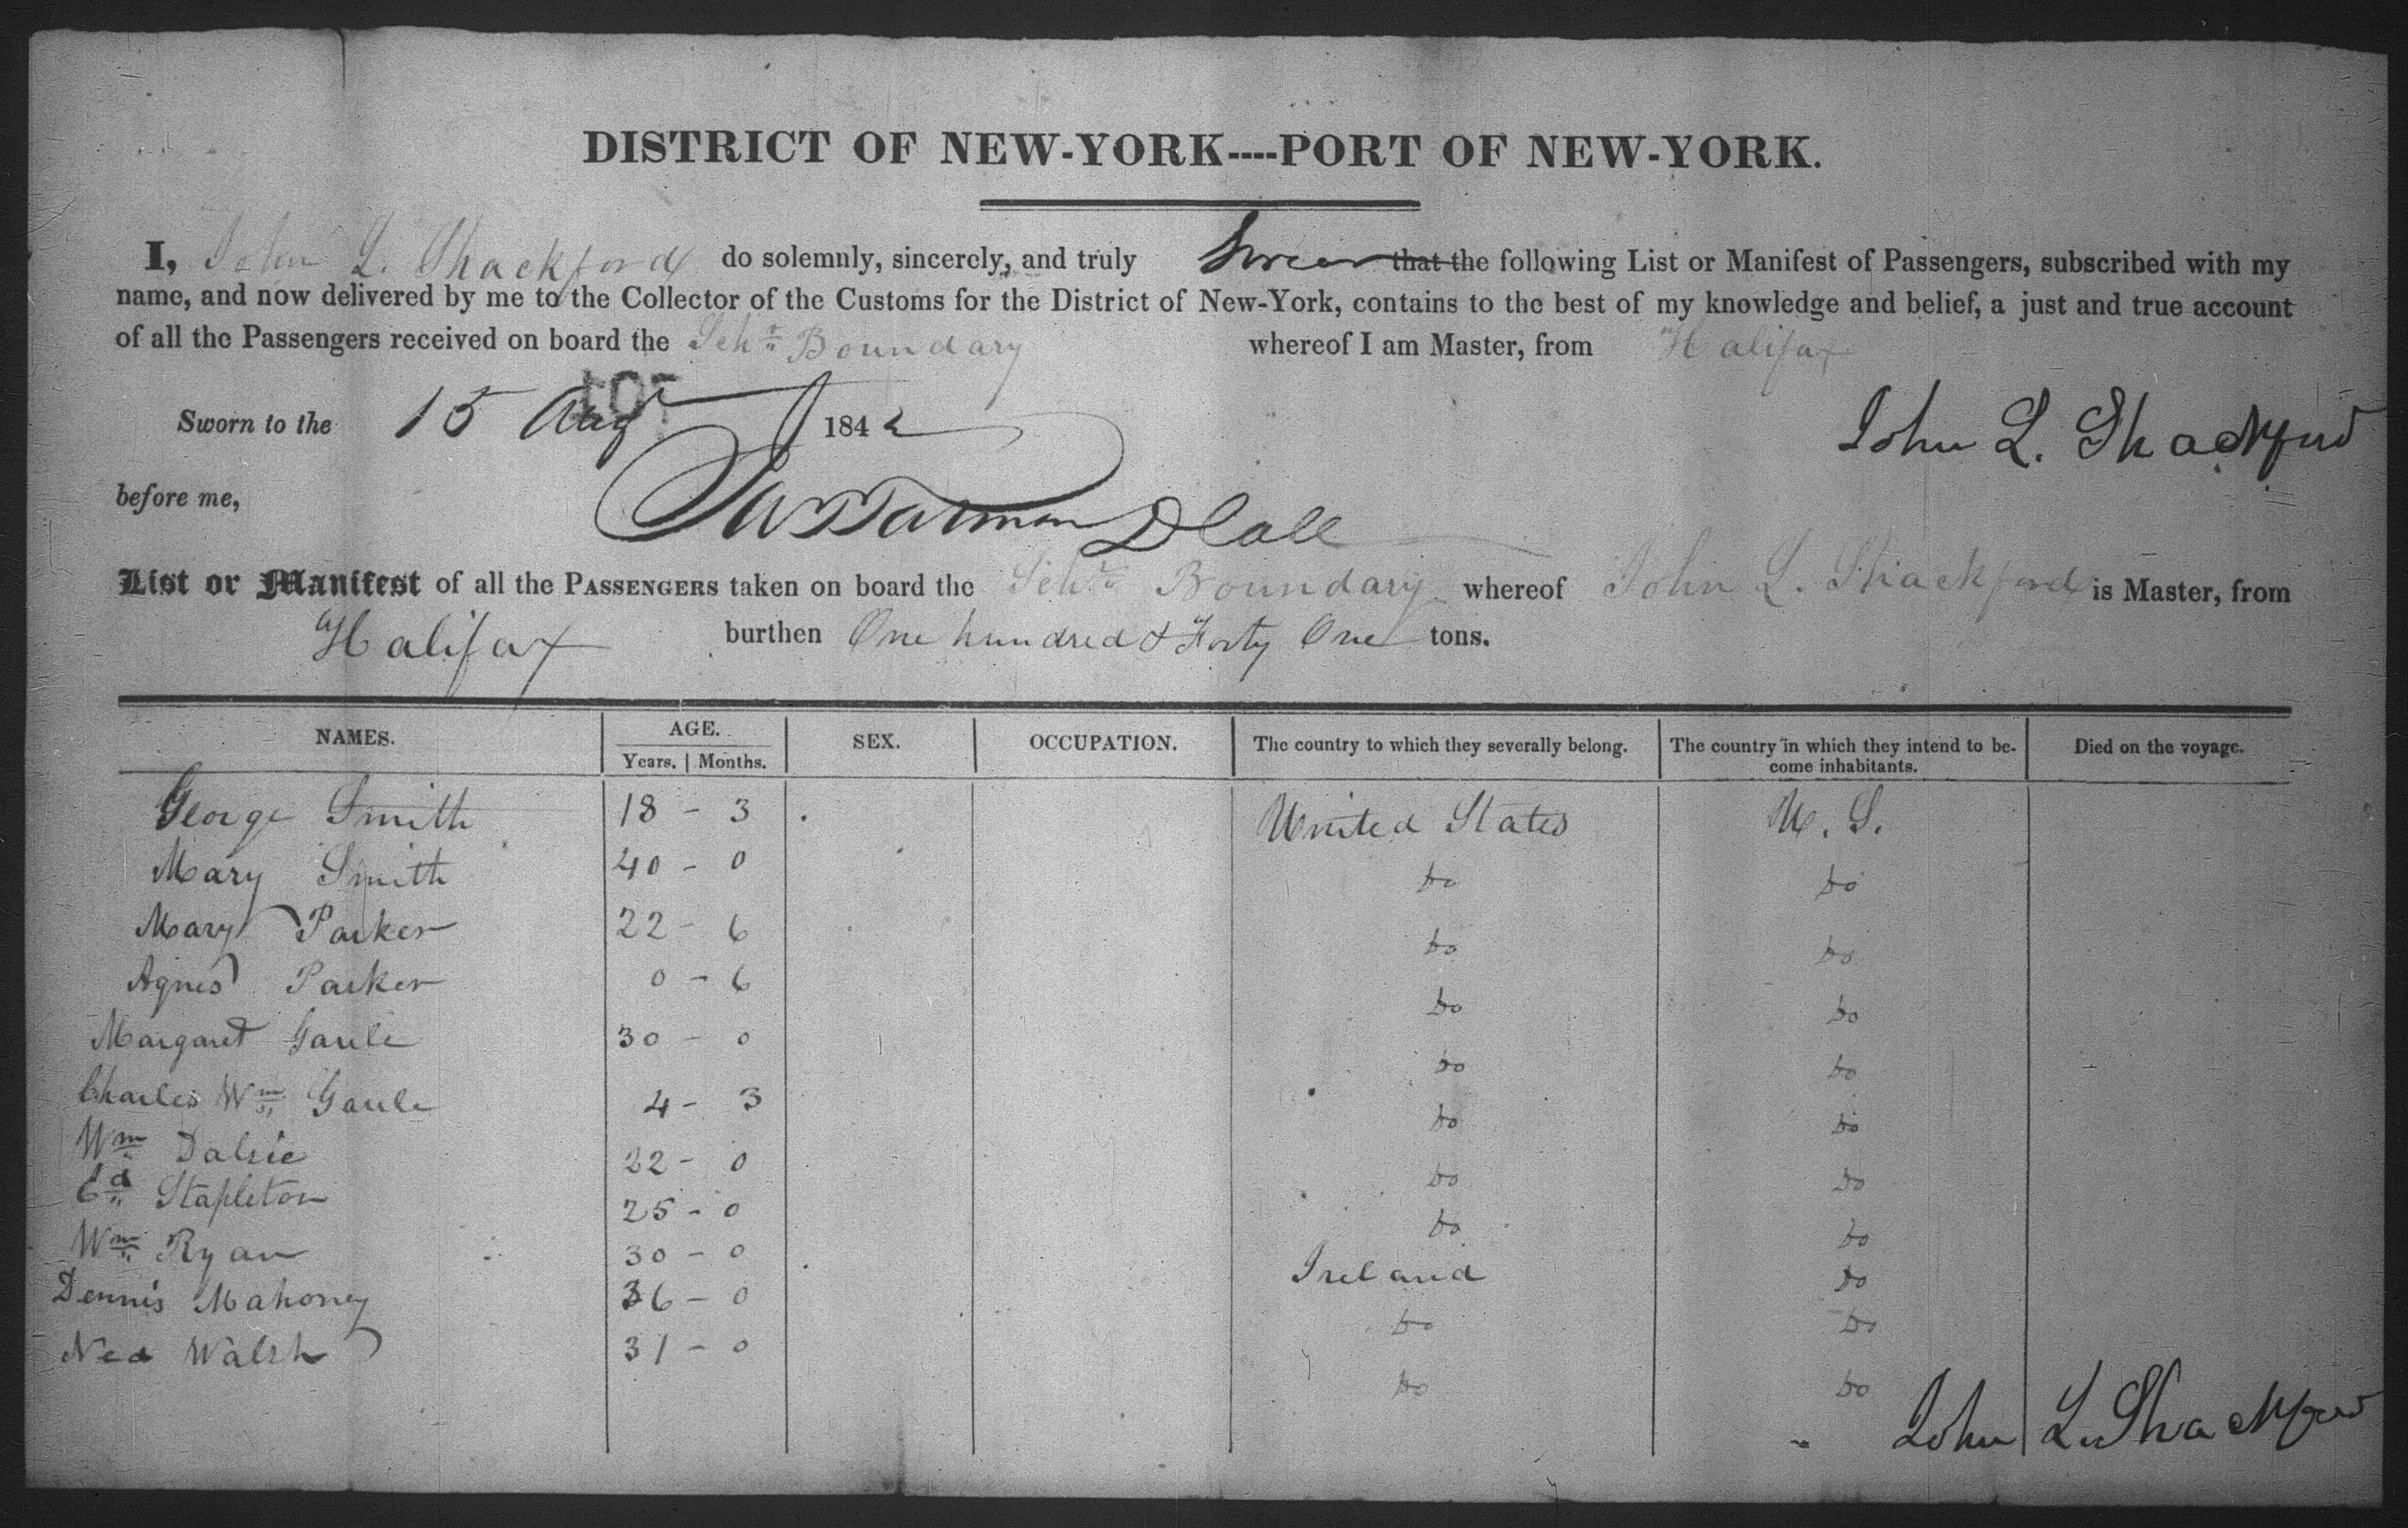 DISTRICT OF NEW-YORK----PORT OF NEW-YORK.
I, John L. Shackford do solemnly, sincerely, and truly Swear that the following List or Manifest of Passengers, subscribed with my
name, and now delivered by me to the Collector of the Customs for the District of New-York, contains to the best of my knowledge and belief, a just and true account
of all the Passengers received on board the Schr Boundary whereof I am Master, from Halifax
Sworn to the 15 Augt 1842 John L. Shackford
before me, D Coll
List or Manifest of all the PASSENGERS taken on board the Schr Boundary whereof John L. Shackford is Master, from
Halifax burthen One hundred & Forty One tons.
NAMES. AGE. SEX. OCCUPATION. The country to which they severally belong. The country in which they intend to be- Died on the voyage.
Years. Months. come inhabitants.
George Smith 18 - 3 United States U. S.
Mary Smith 40 - 0 do do
Mary Parker 22 - 6 do do
Agnes Parker 0 - 6 do do
Margaret Gaule 30 - 0 do do
Charles Wm Gaule 4 - 3 do do
Wm Dalsie 22 - 0 do do
Ed Stapleton 25 - 0 do do
Wm Ryan 30 - 0 Ireland do
Dennis Mahoney 36 - 0 do do
Ned Walsh 31 - 0 do do
John L. Shackford